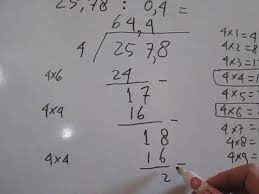 25,78 : 0,4 =
64,4
4 257,8
4x6 24 –
17
4x4 16 –
18
4x4 16 –
2
4x1 = 4
4x2 = 8
4x3 = 1
4x4 = 1
4x5 =
4x6 =
4x7 =
4x8 =
4x9 =